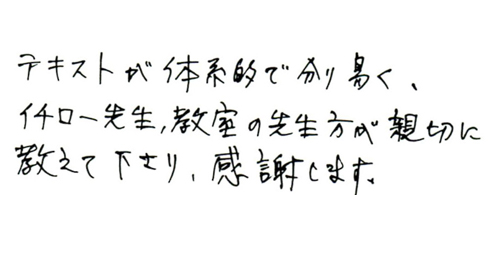 テキストが体系的で分り易く、
イチロー先生,教室の先生方が親切に
教えて下さり、感謝します。